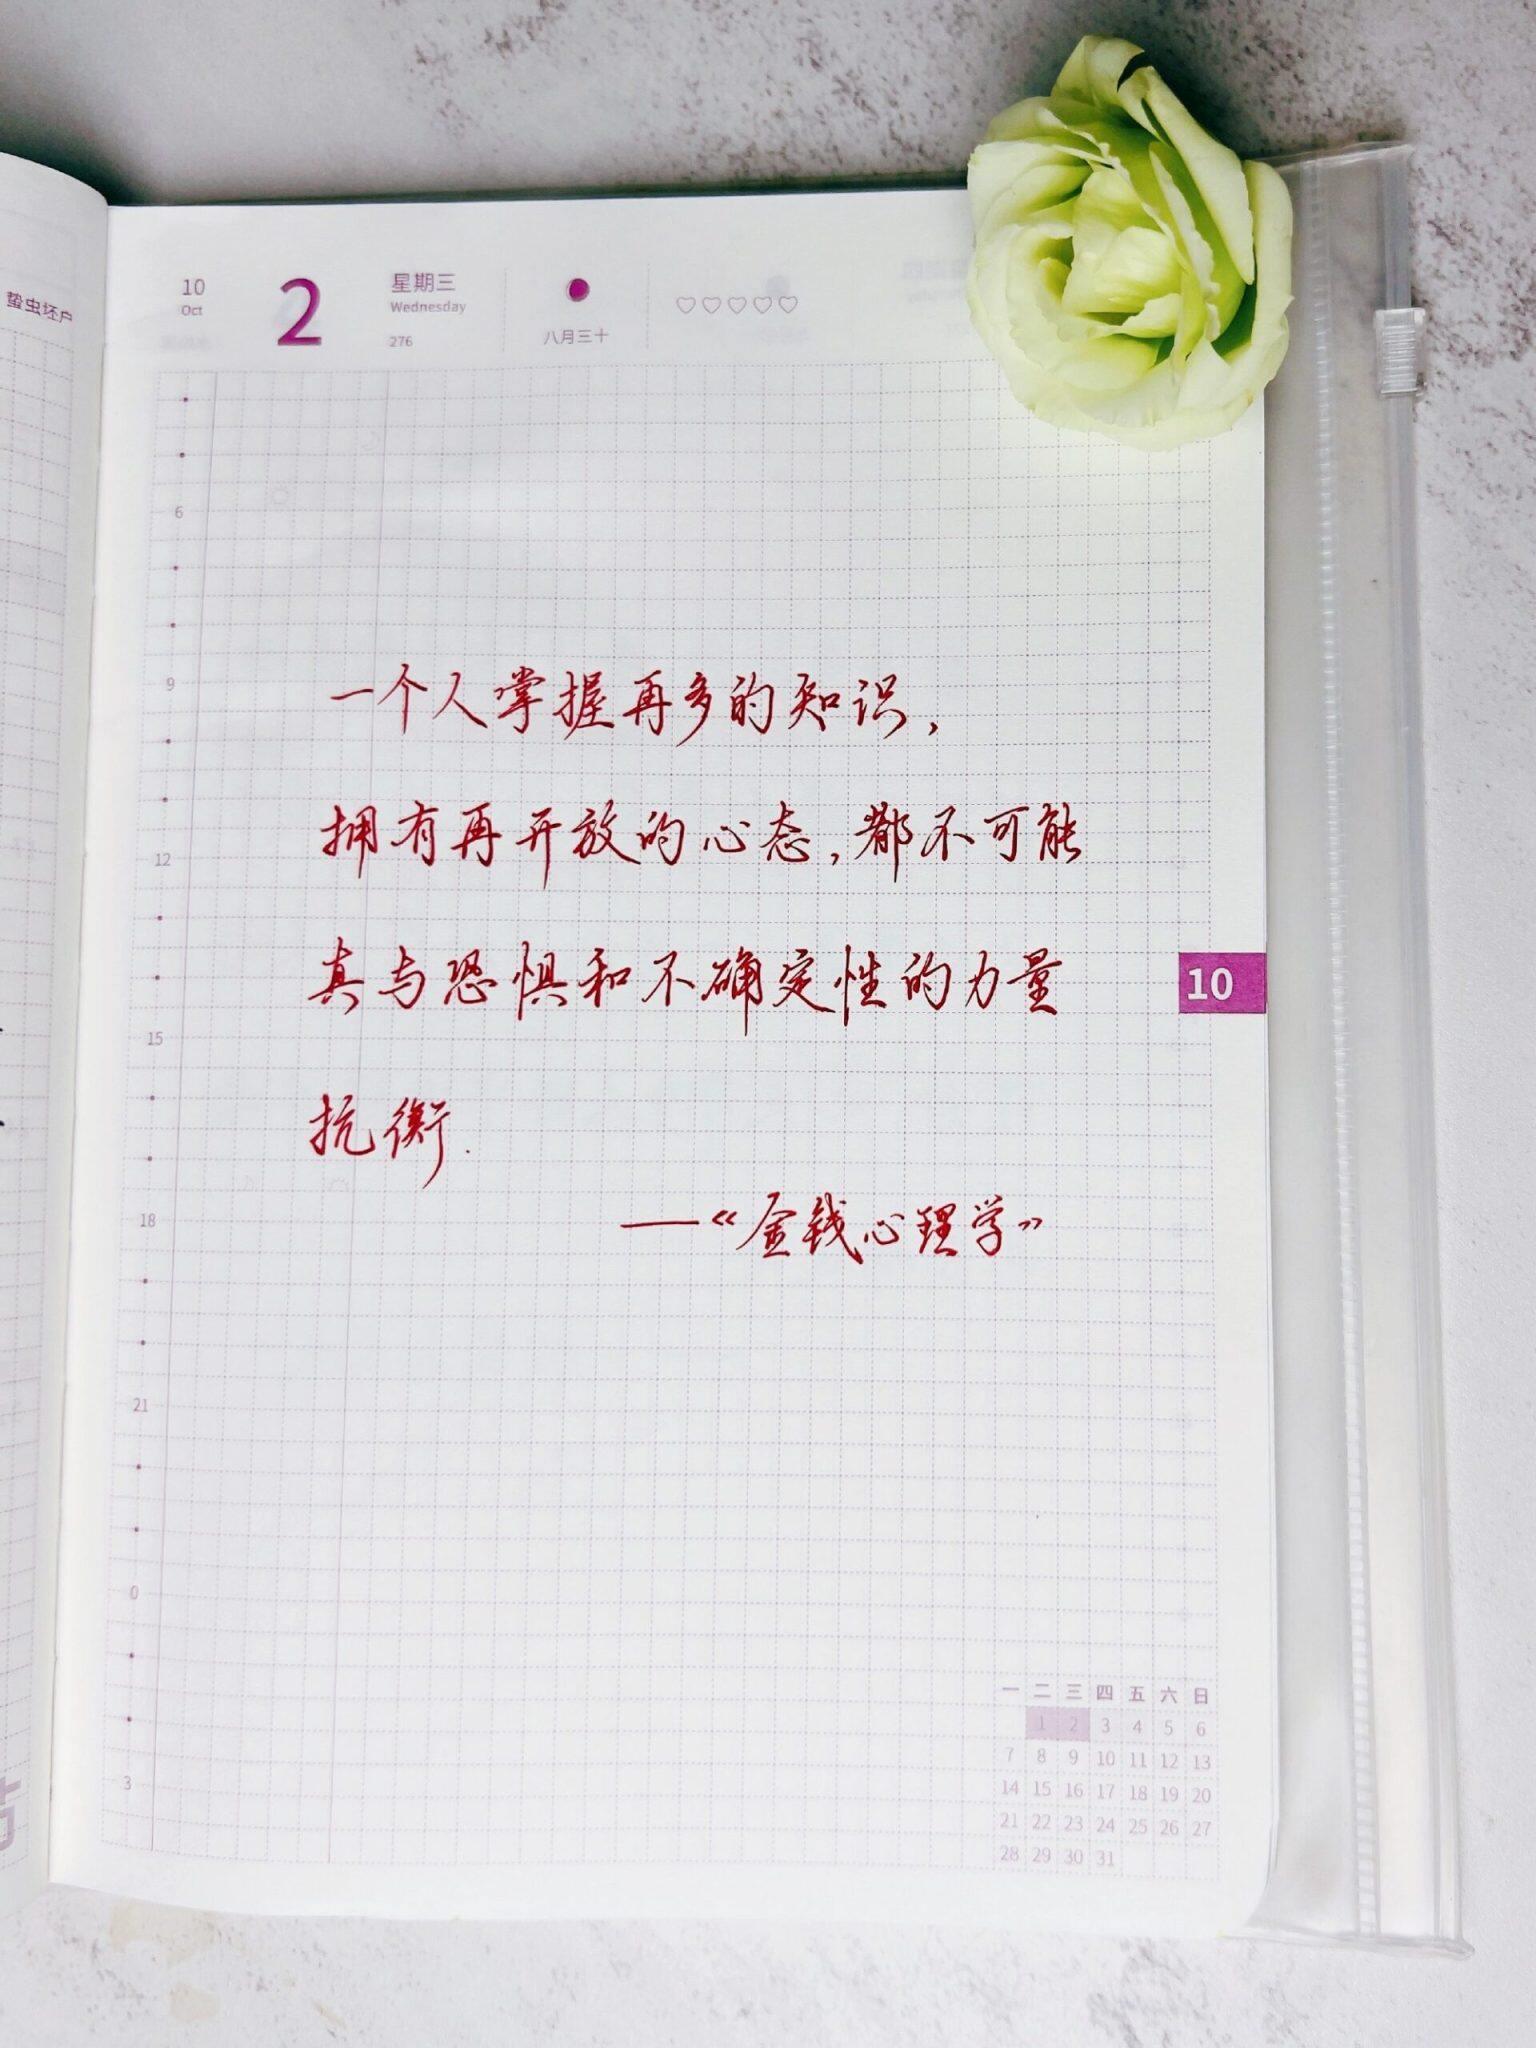 蛰虫坯户
10
Oct
2
星期三
Wednesday
276
八月三十
6
9
12
15
18
21
0
3
一个人掌握再多的知识，
拥有再开放的心态，都不可能
真与恐惧和不确定性的力量
抗衡.
——《金钱心理学》
10
一 二 三 四 五 六 日
1 2 3 4 5 6
7 8 9 10 11 12 13
14 15 16 17 18 19 20
21 22 23 24 25 26 27
28 29 30 31